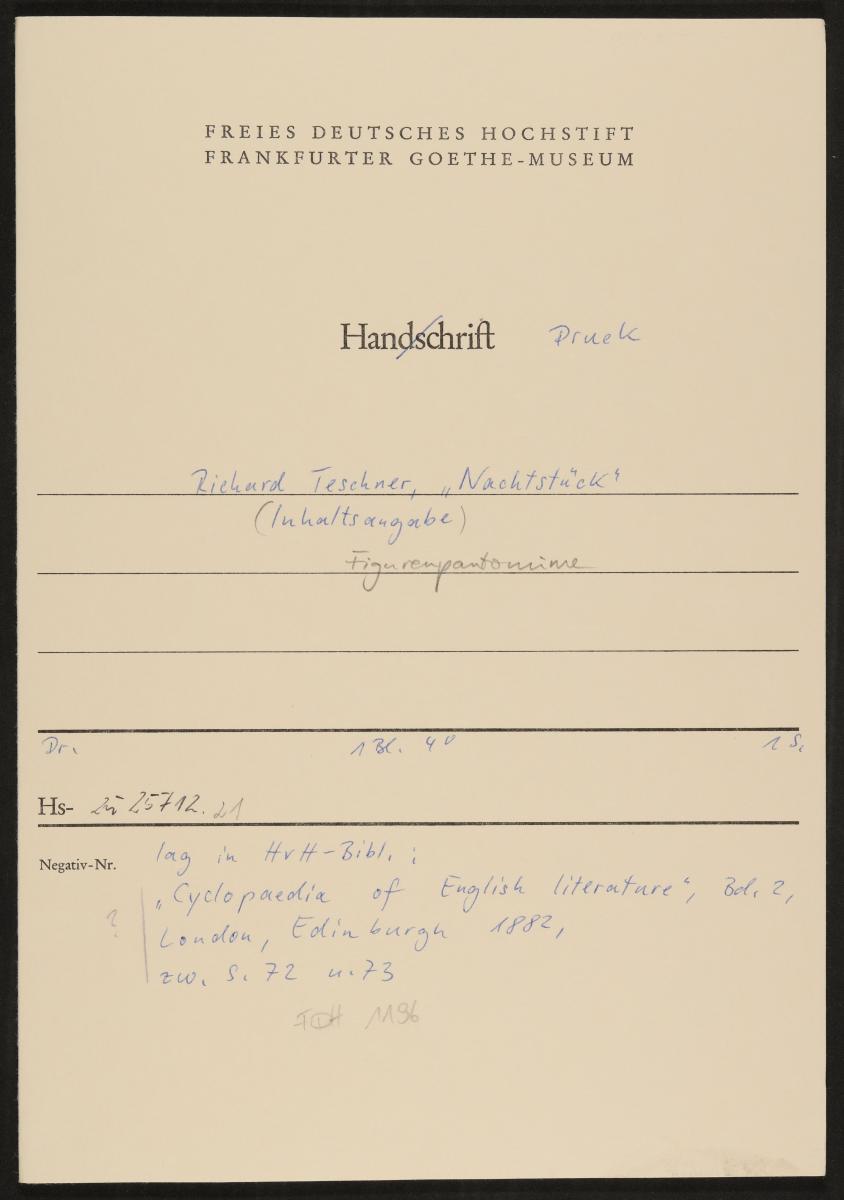 FREIES DEUTSCHES HOCHSTIFT
FRANKFURTER GOETHE-MUSEUM
Handschrift Druck
Richard Teschner, „Nachtstück“
(Inhaltsangabe)
Figurenpantomime
Dr. 1 Bl. 4° 1 S.
Hs- zu 25712.21
Negativ-Nr. lag in HvH-Bibl.:
„Cyclopaedia of English literature“, Bd. 2,
? London, Edinburgh 1882,
zw. S. 72 u. 73
FDH 1196